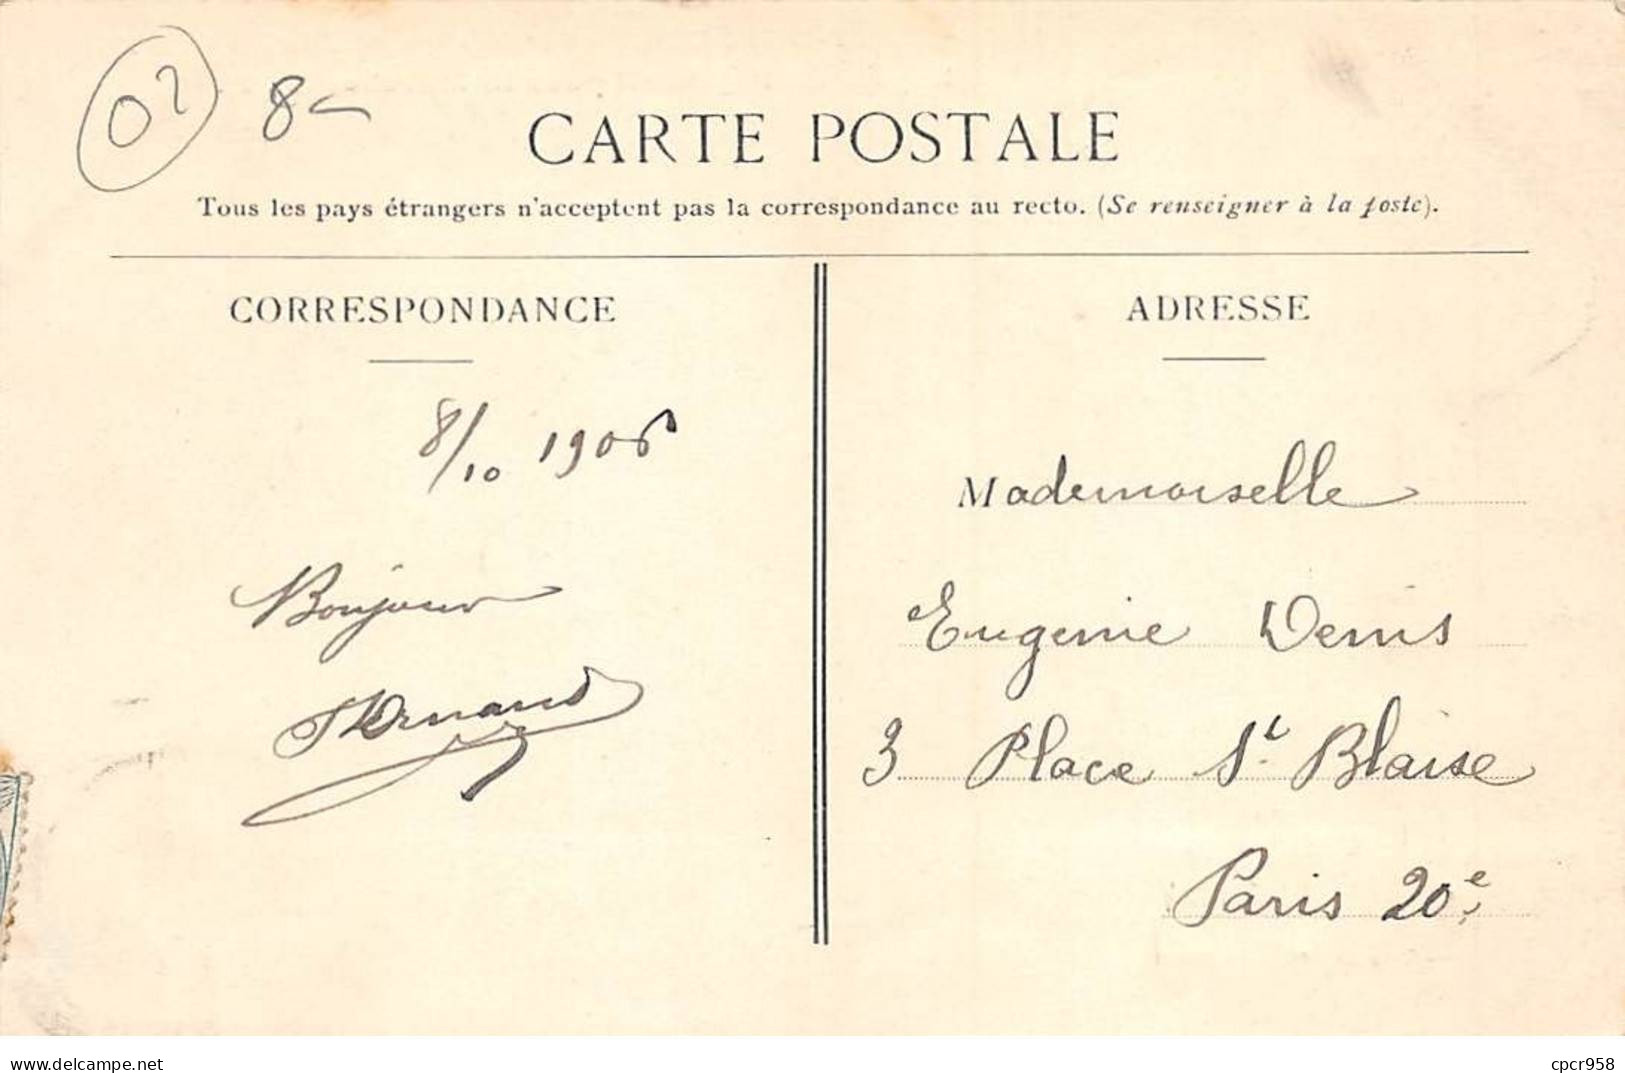 02 8-
CARTE POSTALE
Tous les pays étrangers n'acceptent pas la correspondance au recto. (Se renseigner à la poste).
CORRESPONDANCE
8/10 1906
Bonjour
ADRESSE
Mademoiselle
Eugenie Denis
3 Place St. Blaise
Paris 20e
delcampe.net
cpcr958